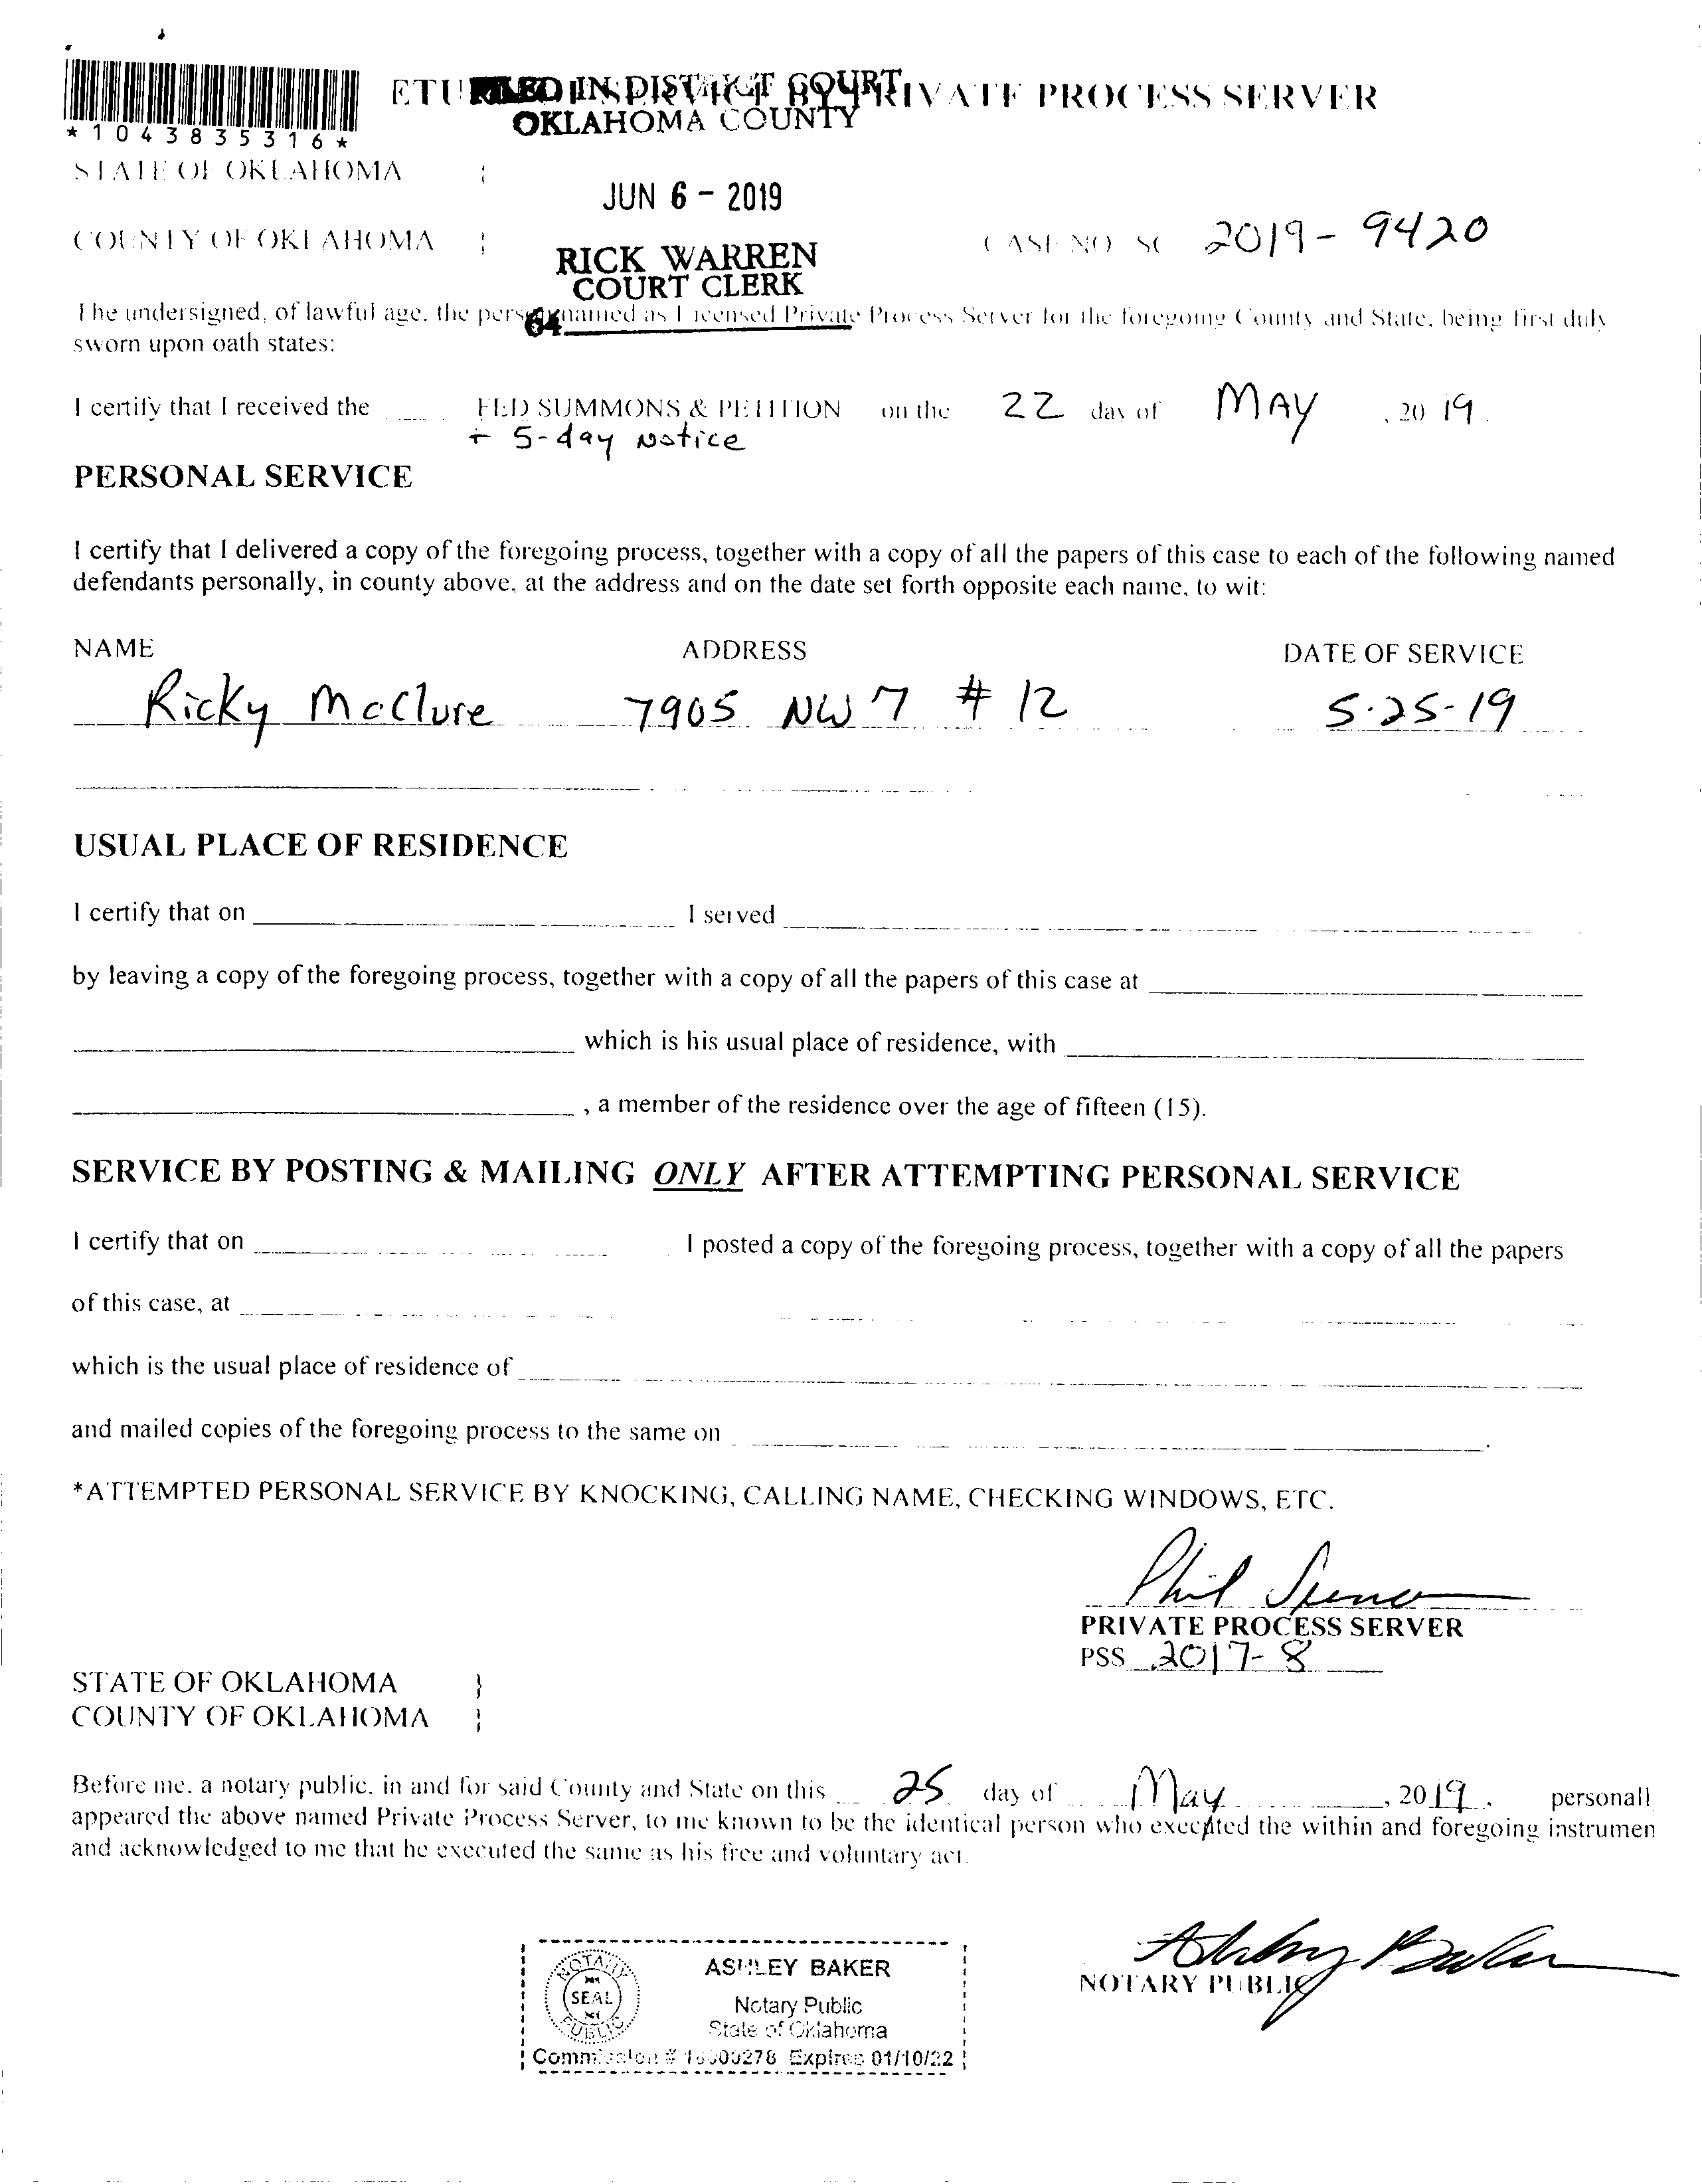 *1043835316*
FILED IN DISTRICT COURT
OKLAHOMA COUNTY
PRIVATE PROCESS SERVER
STATE OF OKLAHOMA
JUN 6 - 2019
COUNTY OF OKLAHOMA
RICK WARREN
COURT CLERK
CASE NO SC 2019-9420
The undersigned, of lawful age, the person named as Licensed Private Process Server for the foregoing County and State, being first duly
64
sworn upon oath states:
I certify that I received the FED SUMMONS & PETITION on the 22 day of MAY, 20 19.
+ 5-day Notice
PERSONAL SERVICE
I certify that I delivered a copy of the foregoing process, together with a copy of all the papers of this case to each of the following named
defendants personally, in county above, at the address and on the date set forth opposite each name, to wit:
NAME ADDRESS DATE OF SERVICE
Ricky McClure 7905 NW 7 # 12 5-25-19
USUAL PLACE OF RESIDENCE
I certify that on I served
by leaving a copy of the foregoing process, together with a copy of all the papers of this case at
which is his usual place of residence, with
, a member of the residence over the age of fifteen (15).
SERVICE BY POSTING & MAILING ONLY AFTER ATTEMPTING PERSONAL SERVICE
I certify that on I posted a copy of the foregoing process, together with a copy of all the papers
of this case, at
which is the usual place of residence of
and mailed copies of the foregoing process to the same on .
*ATTEMPTED PERSONAL SERVICE BY KNOCKING, CALLING NAME, CHECKING WINDOWS, ETC.
Phil
PRIVATE PROCESS SERVER
PSS 2017-8
STATE OF OKLAHOMA }
COUNTY OF OKLAHOMA }
Before me, a notary public, in and for said County and State on this 25 day of May, 2019. personall
appeared the above named Private Process Server, to me known to be the identical person who executed the within and foregoing instrumen
and acknowledged to me that he executed the same as his free and voluntary act.
Ashley Baker
NOTARY PUBLIC
NOTARY
SEAL
PUBLIC
ASHLEY BAKER
Notary Public
State of Oklahoma
Commission # Expires 01/10/22